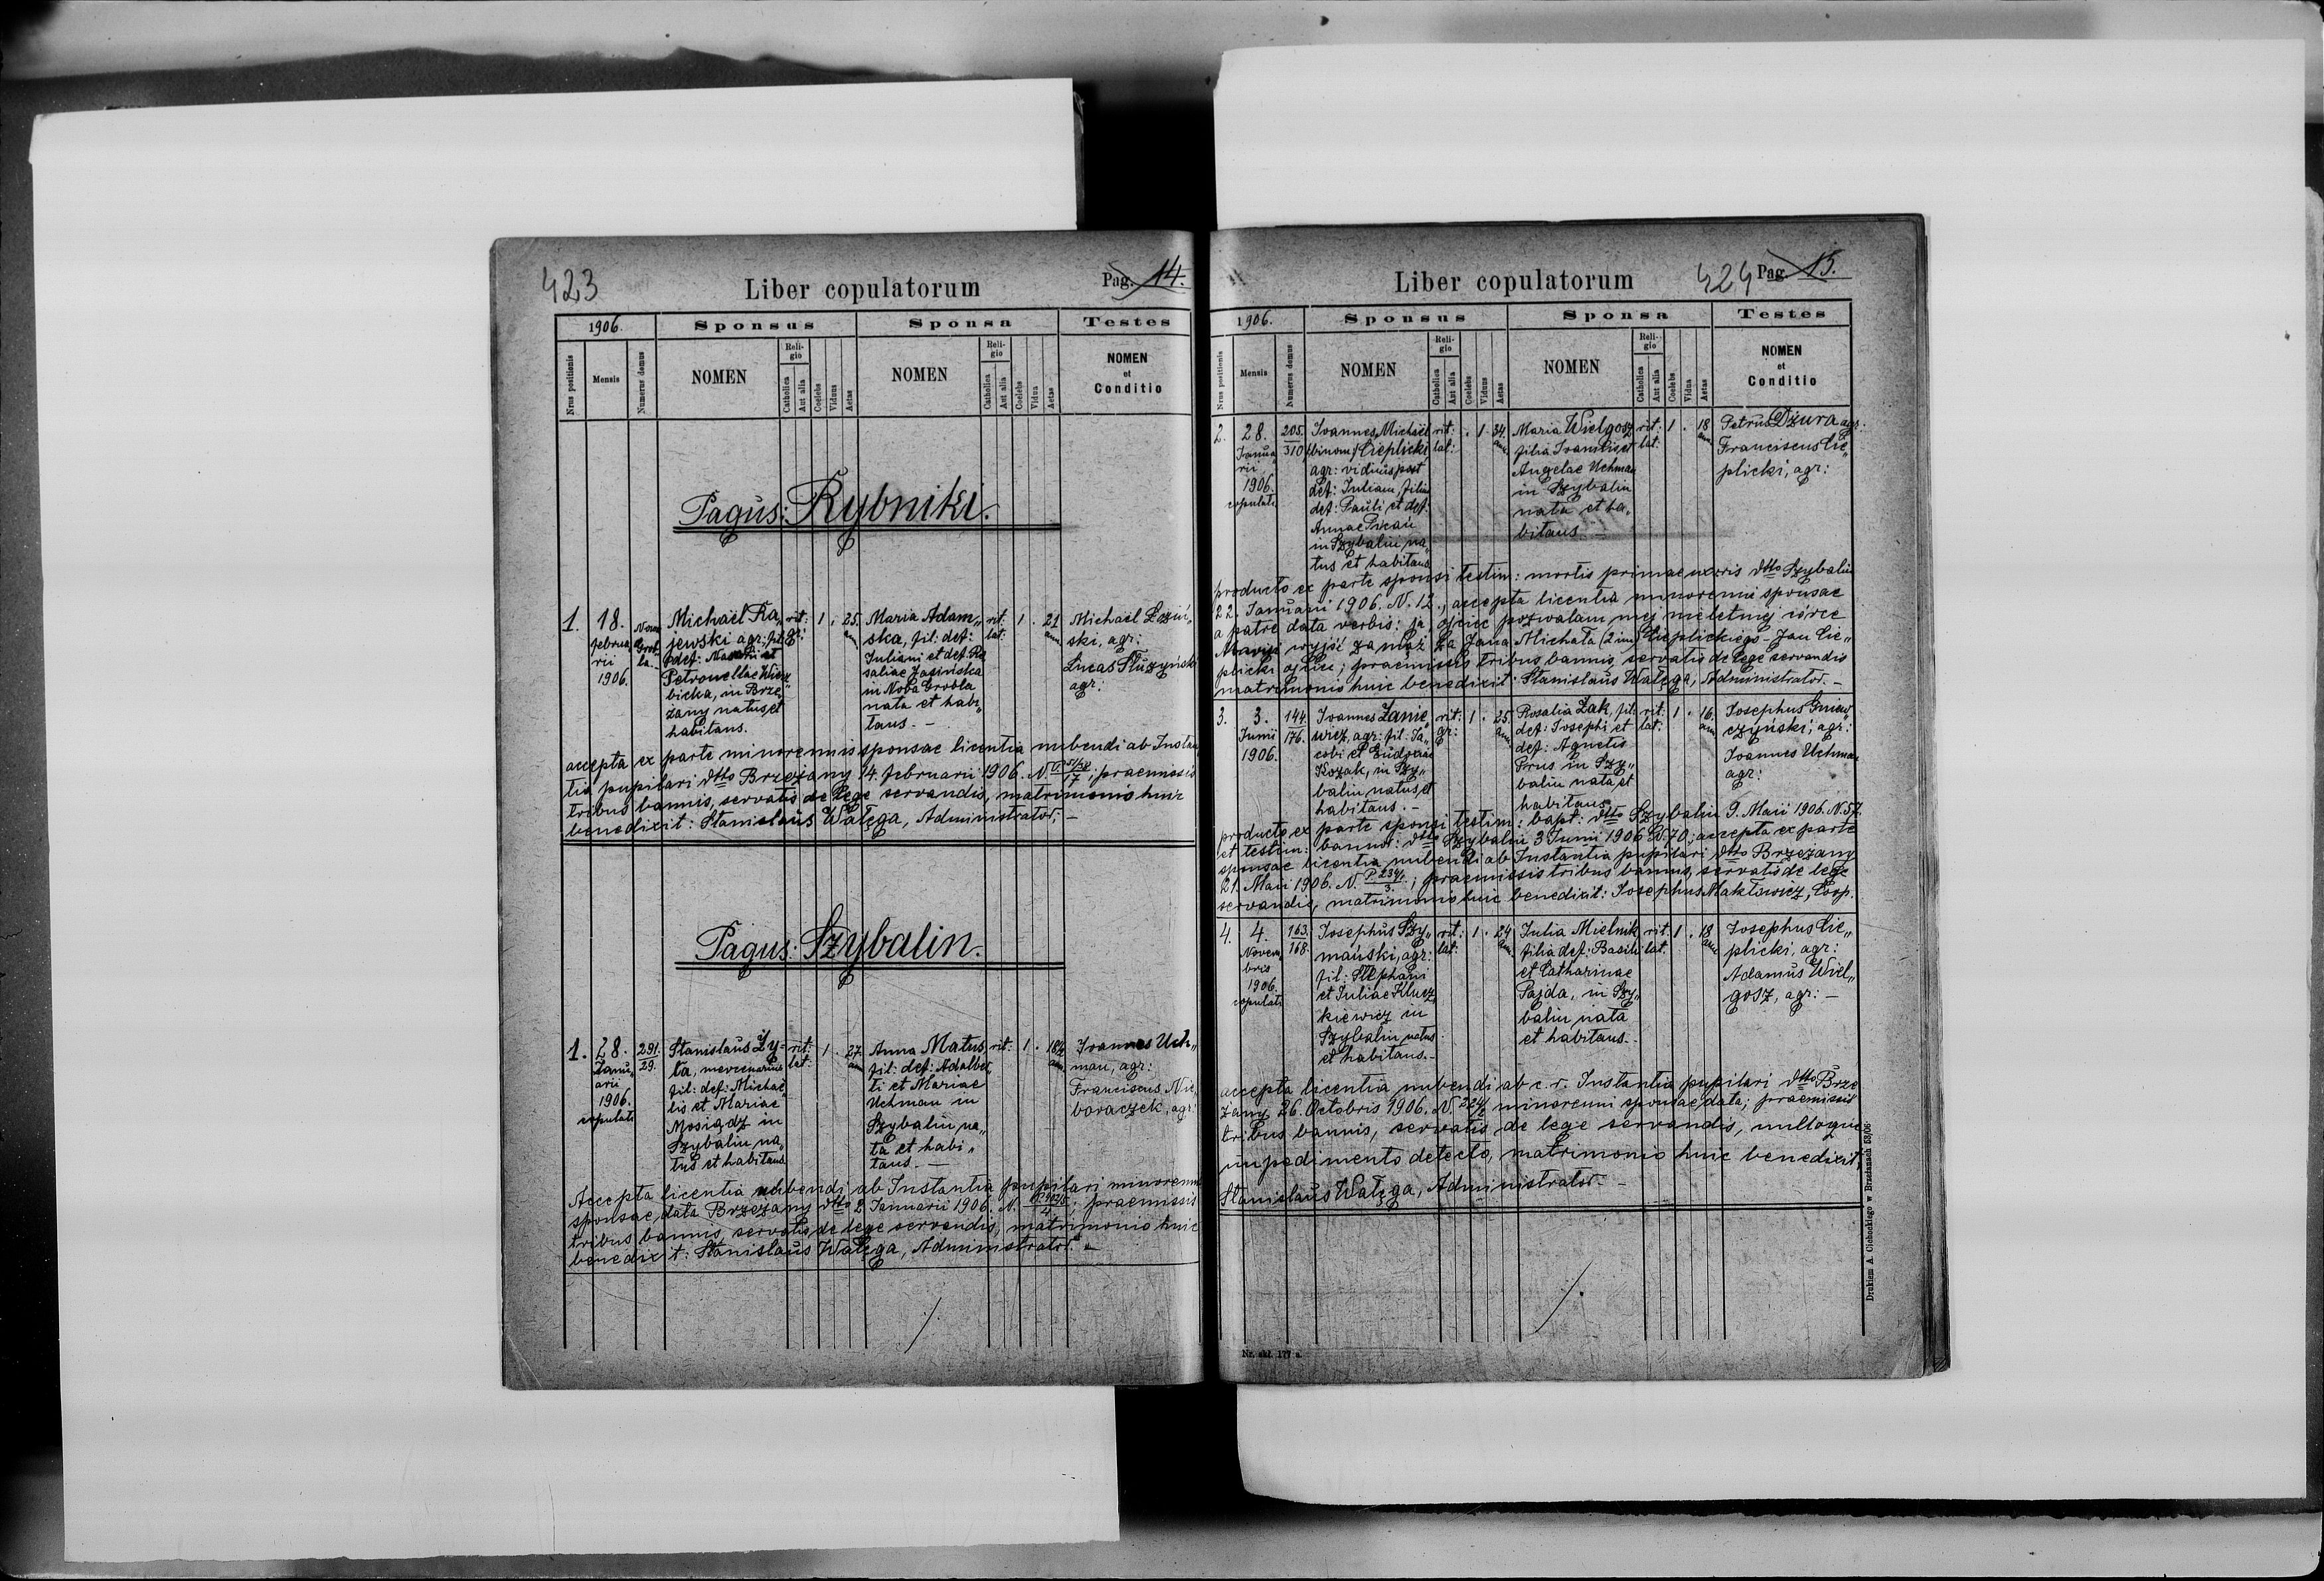 423
Liber copulatorum
Pag. 14.
1906.
Sponsus
Sponsa
Testes
Nrus positionis
Mensis
Numerus domus
NOMEN
Religio
Catholica
Aut alia
Coelebs
Viduus
Aetas
NOMEN
Religio
Catholica
Aut alia
Coelebs
Vidua
Aetas
NOMEN
et
Conditio
Pagus: Rybniki.
1.
18.
Februa
rii
1906.
Nowa
Grob,,
la.
Michaël Ra,,
jewski agr: fil:
def:
Petronellae
bicka, in Brze,,
żany natus et
habitans.
rit:
gr:
1
25.
Maria Adam,,
ska, fil: def:
Juliani et def. Ro
saliae Jasińska
in Nova Grobla
nata et habi,,
tans. –
rit:
lat:
1
21
ann
Michaël Łoziń,,
ski, agr:
Lucas Służyński
agr:
accepta ex parte minorennis sponsae licentia nubendi ab Instan
tia pupilari dtto Brzeżany 14. Februarii 1906. N. praemissis
tribus bannis, servatis de lege servandis, matrimonio huic
benedixit: Stanislaus Wałęga, Administrator. –
Pagus: Szybalin.
1.
28.
Janu,,
arii
1906.
copulati
291.
29.
Stanislaus Ży-
ła, mercenarius
fil: def: Michae
lis et Mariae
Mosiądz in
Szybalin na,,
tus et habitans
rit:
lat:
1
27.
ann
Anna Matus,
fil: def: Adalber
ti et Mariae
Uchman in
Szybalin na,,
ta et habi,,
tans. –
rit:
1
18
ann
Joannes Uch,,
man, agr:
Franciscus Nie,,
boraczek, agr:
Accepta licentia nubendi ab Instantia pupilari minorenni
sponsae data Brzeżany dtto 2 Januarii 1906. N. ; praemissis
tribus bannis, servatis de lege servandis, matrimonio huic
benedixit: Stanislaus Wałęga, Administrator. –
424
Liber copulatorum
Pag. 15.
1906.
Sponsus
Sponsa
Testes
Nrus positionis
Mensis
Numerus domus
NOMEN
Religio
Catholica
Aut alia
Coelebs
Viduus
Aetas
NOMEN
Religio
Catholica
Aut alia
Coelebs
Vidua
Aetas
NOMEN
et
Conditio
2.
28.
Janua
rii
1906.
copulati
205.
310
Joannes Michaël
(binom) Cieplicki,
agr: viduus post
def: Juliam, filius
def: Pauli et def:
Annae
in Szybalin na,,
tus et habitans
rit:
lat:
1
34.
ann
Maria Wielgosz
filia Joannis et
Angelae Uchman
in Szybalin
nata et ha,,
bitans. –
rit:
lat:
1
18
ann
Petrus Dżura agr.
Franciscus Cie,,
plicki, agr:
producto ex parte sponsi testim: mortis primae uxoris dtto Szybalin
22. Januarii 1906. N. 12., accepta licentia minorenni sponsae
a patre data verbis: ja, ojciec pozwalam mej nieletniej córce
Maryi wyjść za mąż za Jana Michała (2im) Cieplickiego – Jan Cie,,
plicki ojciec; praemissis tribus bannis, servatis de lege servandis
matrimonio huic benedixit: Stanislaus Wałęga, Administrator. –
3.
3.
Junii
1906.
144.
176.
Joannes Zanie,,
wicz, agr. fil: Ja,,
cobi et Eudoxiae
Kozak, in Szy,,
balin natus et
habitans. –
rit:
gr:
1
25.
ann
Rosalia Żak, fil:
def: Josephi et
def: Agnetis
Prus in Szy,,
balin nata et
habitans.
rit:
lat:
1
16.
ann
Josephus Gniew,,
czyński, agr:
Joannes Uchman
agr:
producto ex parte sponsi testim: bapt: dtto Szybalin 9. Maii 1906. N. 57.
et testim: bannor: dtto Szybalin 3 Junii 1906 N. 70; accepta ex parte
sponsae licentia nubendi ab Instantia pupilari dtto Brzeżany
21. Maii 1906. N. ; praemissis tribus bannis, servatis de lege
servandis, matrimonio huic benedixit: Josephus Makłowicz, Coop.
4.
4.
Novem
bris
1906.
copulati
163.
168.
Josephus Szy,,
mański, agr:
fil: Stephani
et Juliae Klucz,,
kiewicz in
Szybalin natus
et habitans. –
rit:
lat:
1
24
ann
Julia Mielnik
filia def: Basilii
et Catharinae
Pajda, in Szy,,
balin nata
et habitans. –
rit:
lat.
1
18
ann
Josephus Cie,,
plicki, agr:
Adamus Wiel,,
gosz, agr: –
accepta licentia nubendi ab c. r. Instantia pupilari dtto Brze
żany 26. Octobris 1906. N. minorenni sponsae data; praemissis
tribus bannis, servatis de lege servandis, nulloque
impedimento detecto, matrimonio huic benedixit,
Stanislaus Wałęga, Administrator. –
Nr. skł. 177 a.
Drukiem A. Cichockiego w Brzeżanach 53/06